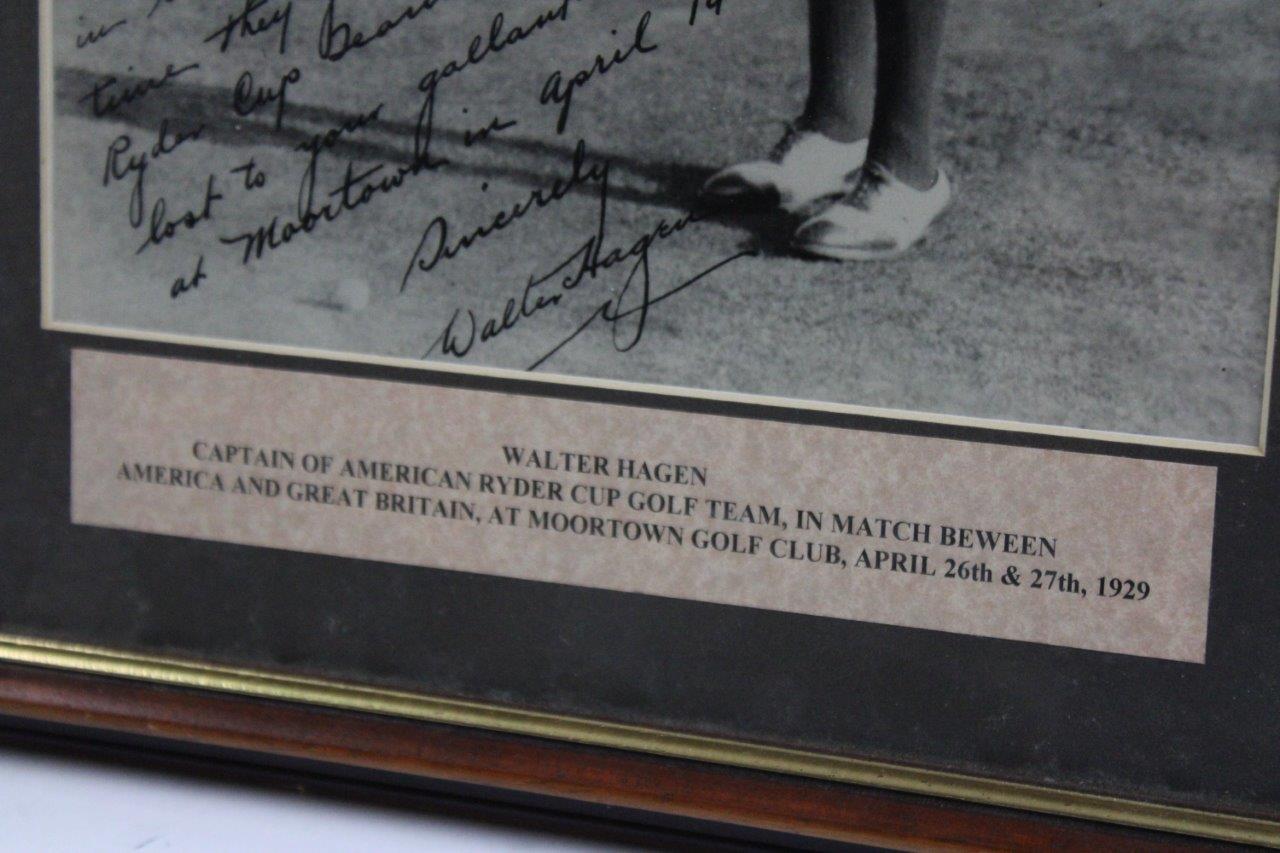 in
time they
Ryder Cup
lost to your gallant
at Moortown in April 19
Sincerely
Walter Hagen
WALTER HAGEN
CAPTAIN OF AMERICAN RYDER CUP GOLF TEAM, IN MATCH BEWEEN
AMERICA AND GREAT BRITAIN, AT MOORTOWN GOLF CLUB, APRIL 26th & 27th, 1929